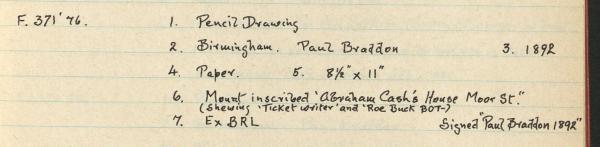 F. 371'76. 1. Pencil Drawing
2. Birmingham. Paul Braddon 3. 1892
4. Paper. 5. 8½" x 11"
6. Mount inscribed 'Abraham Cash's House Moor St."
(Shewing 'Ticket writer' and 'Roe Buck BOT-)
7. Ex BRL Signed "Paul Braddon 1892"